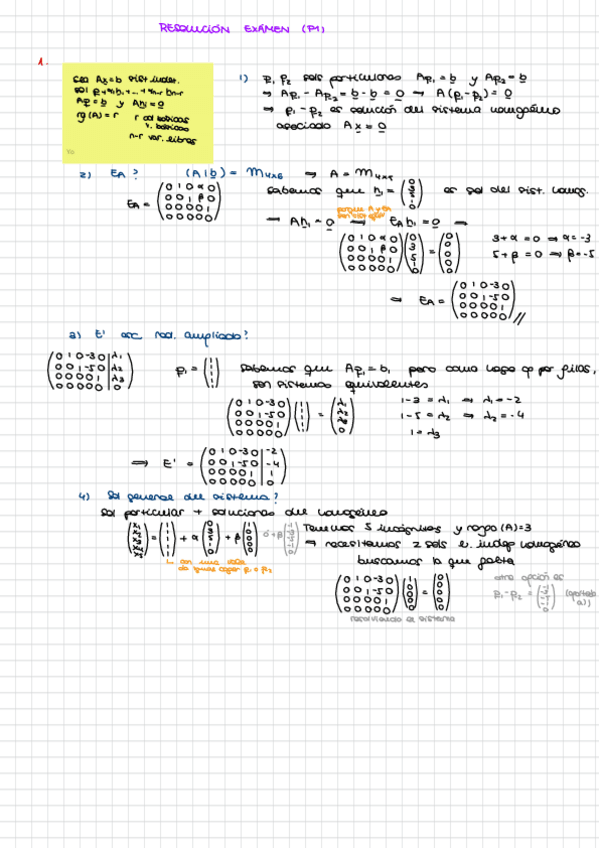 RESOLUCIÓN EXÁMEN (P1)
1.
sea Ax=b sist. indet.
sol p+α₁h₁+...+αn-r hn-r
Ap=b y Ahᵢ=0
rg(A)=r r col básicas
v. básicas
n-r var. libres
1) p₁ p₂ sols particulares Ap₁=b y Ap₂=b
⇒ Ap₁-Ap₂=b-b=0 → A(p₁-p₂)=0
⇒ p₁-p₂ es solución del sistema homogéneo
asociado Ax=0
2) EA? (A|b) = M4x6 ⇒ A = M4x5
EA = (0 1 0 α 0
0 0 1 β 0
0 0 0 0 1
0 0 0 0 0)
sabemos que h₁ = es sol del sist. homog.
→ Ah₁=0 → EA h₁=0 ⇒
(0 1 0 α 0
0 0 1 β 0
0 0 0 0 1
0 0 0 0 0) (0 3 5 1 0) = (0 0 0 0)
3+α=0 ⇒ α=-3
5+β=0 ⇒ β=-5
⇒ EA = (0 1 0 -3 0
0 0 1 -5 0
0 0 0 0 1
0 0 0 0 0) //
3) E' esc. red. ampliado?
(0 1 0 -3 0 | λ₁
0 0 1 -5 0 | λ₂
0 0 0 0 1 | λ₃
0 0 0 0 0 | 0)
p₁ = (1 1 1 1 1) sabemos que Ap₁=b, pero como hago op por filas,
son sistemas equivalentes
(0 1 0 -3 0
0 0 1 -5 0
0 0 0 0 1
0 0 0 0 0) (1 1 1 1 1) = (λ₁ λ₂ λ₃ 0)
1-3=λ₁ ⇒ λ₁=-2
1-5=λ₂ ⇒ λ₂=-4
1=λ₃
⇒ E' = (0 1 0 -3 0 | -2
0 0 1 -5 0 | -4
0 0 0 0 1 | 1
0 0 0 0 0 | 0)
4) Sol general del sistema?
Sol particular + soluciones del homogéneo
= (1 1 1 1 1) + α (0 3 5 1 0) + β (1 0 0 0 0)
Tenemos 5 incógnitas y rango(A)=3
⇒ necesitamos 2 sols l. indep homogéneo
buscamos la que falta
(0 1 0 -3 0
0 0 1 -5 0
0 0 0 0 1
0 0 0 0 0) (1 0 0 0 0) = (0 0 0 0)
resolviendo el sistema
otra opción es
p₁-p₂ =